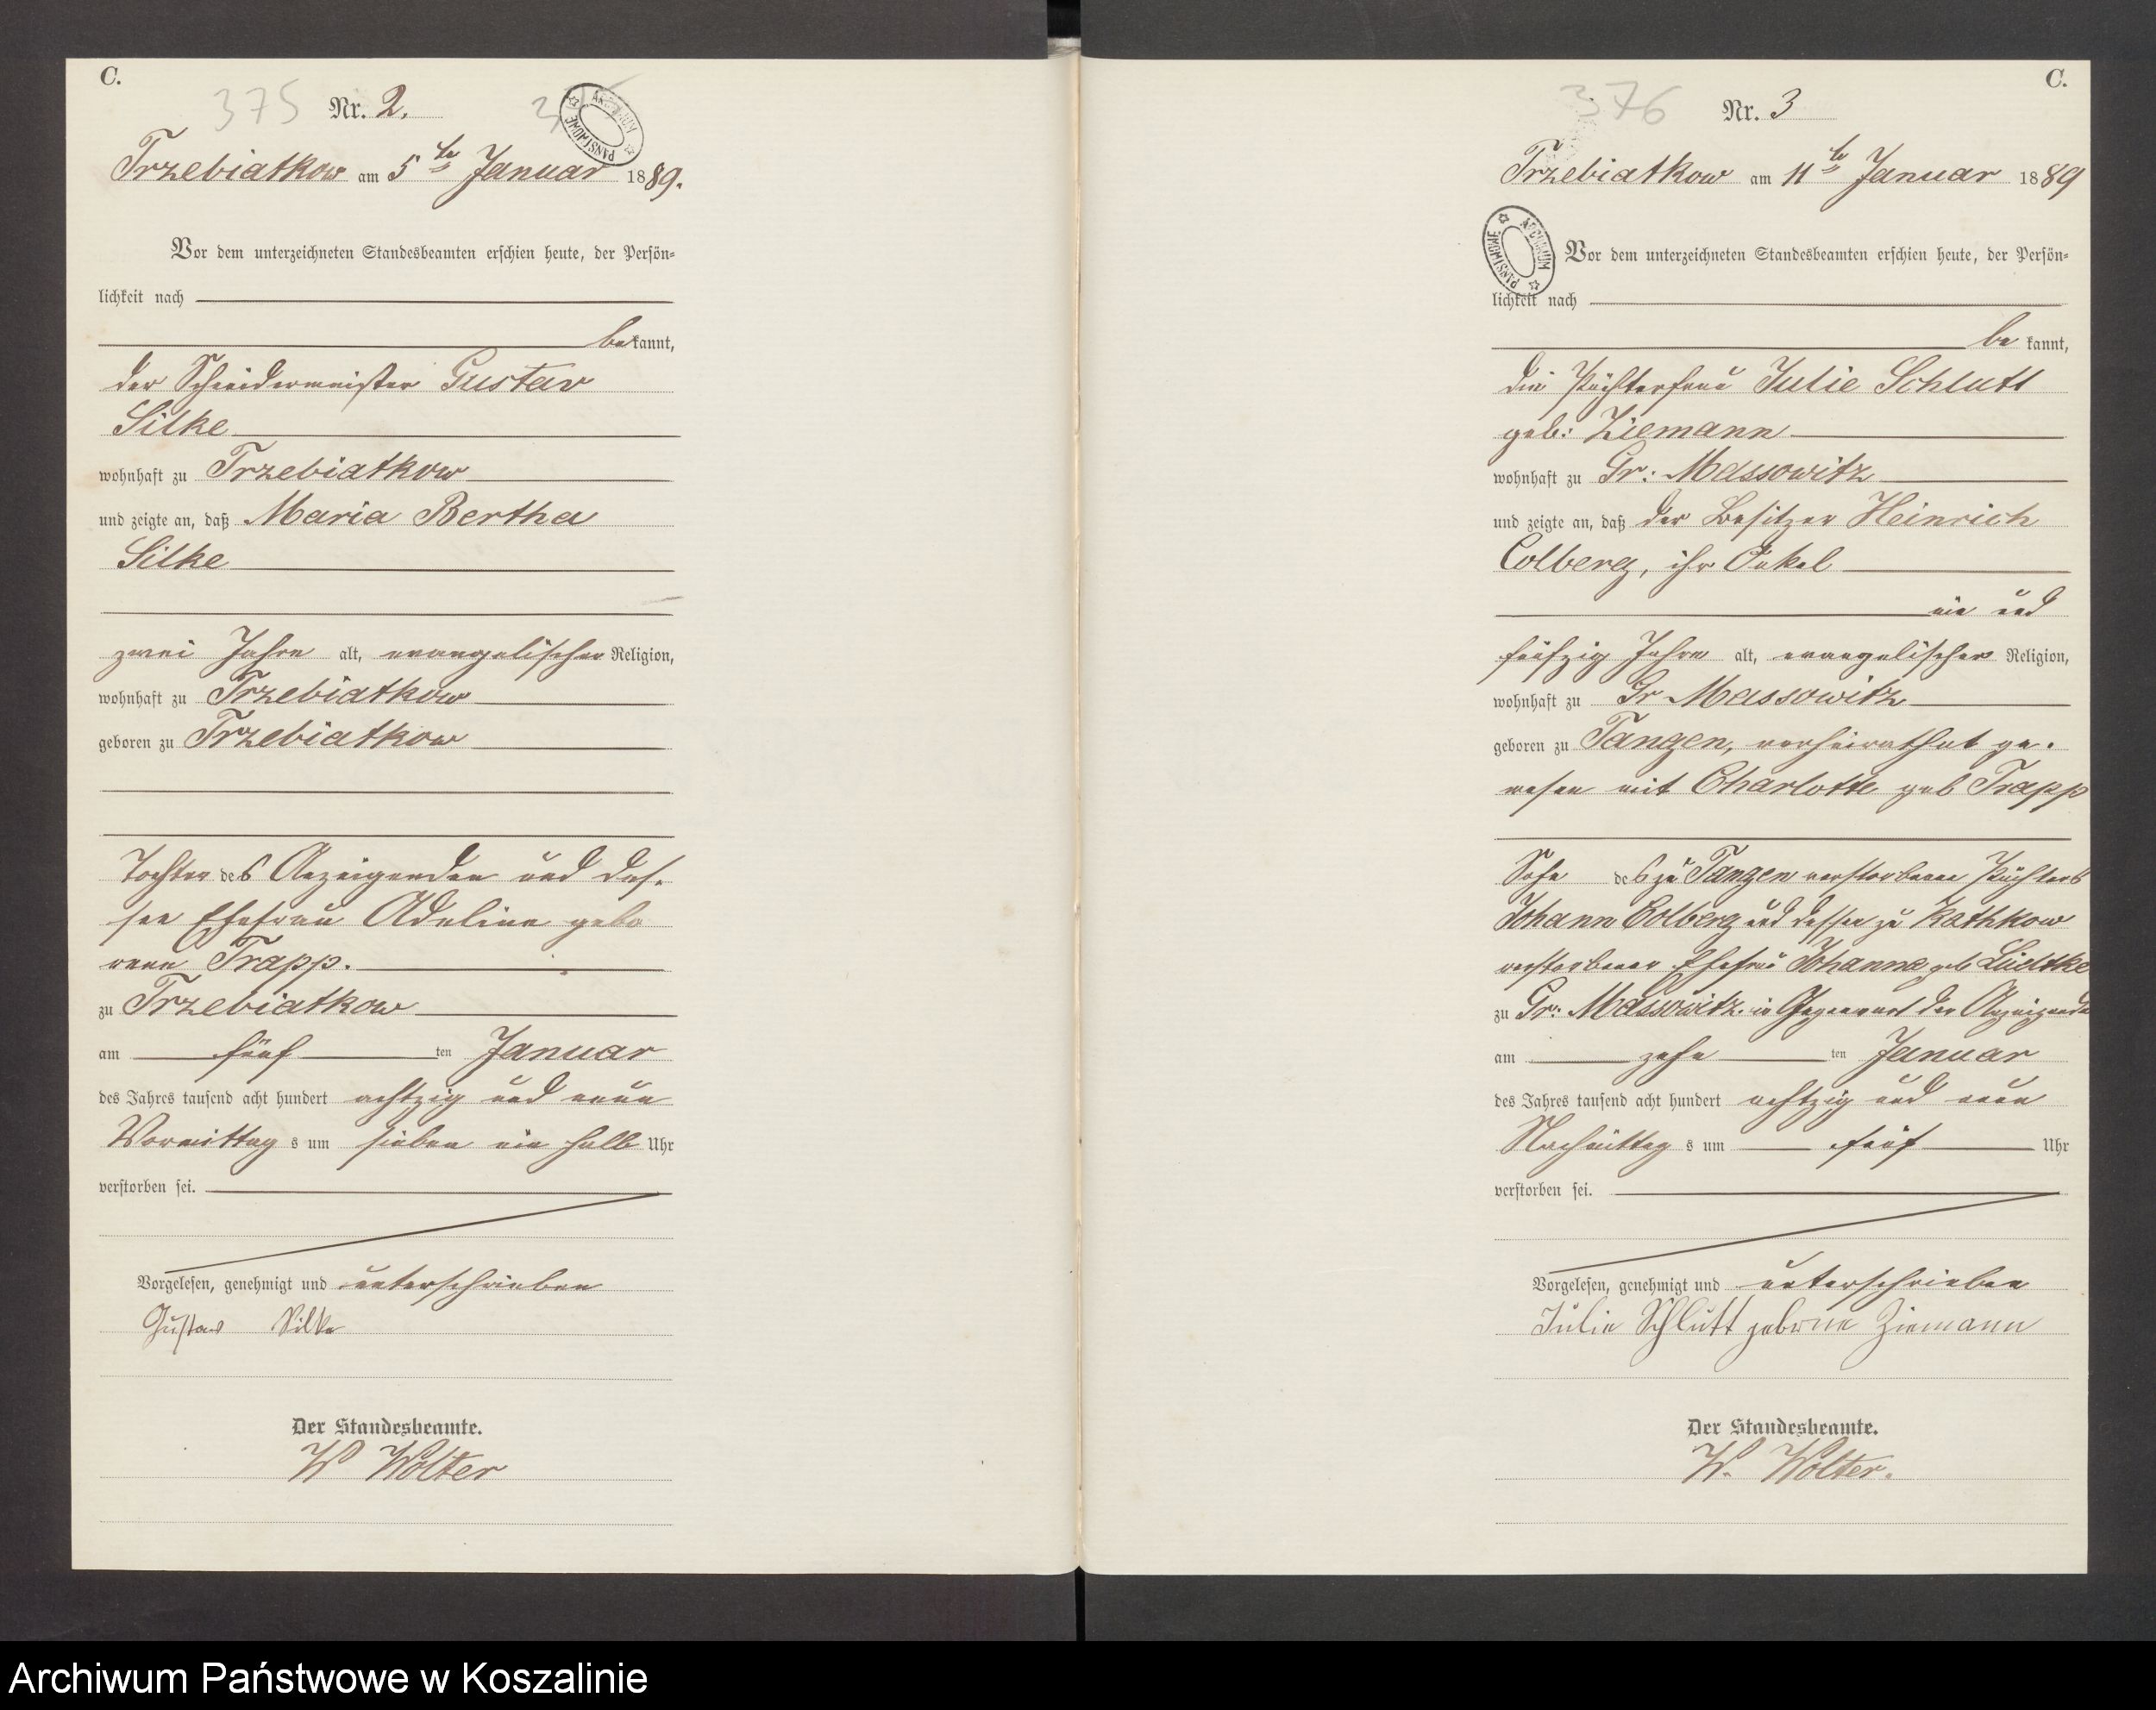 C.
375 Nr. 2.
ARCHIWUM PAŃSTWOWE
Trzebiatkow am 5ten Januar 1889.
Vor dem unterzeichneten Standesbeamten erschien heute, der Persön-
lichkeit nach
bekannt,
der Schneidermeister Gustav
Silke
wohnhaft zu Trzebiatkow
und zeigte an, daß Maria Bertha
Silke
zwei Jahre alt, evangelischer Religion,
wohnhaft zu Trzebiatkow
geboren zu Trzebiatkow
Tochter des Anzeigenden und des-
sen Ehefrau Adeline gebo
rene Trapp.
zu Trzebiatkow
am fünf ten Januar
des Jahres tausend acht hundert achtzig und neun
Vormittag s um sieben ein halb Uhr
verstorben sei.
Vorgelesen, genehmigt und unterschrieben
Gustav Silke
Der Standesbeamte.
W Wolter
C.
376 Nr. 3
Trzebiatkow am 11ten Januar 1889
ARCHIWUM PAŃSTWOWE
Vor dem unterzeichneten Standesbeamten erschien heute, der Persön-
lichkeit nach
be kannt,
die Pächterfrau Julie Schlutt
geb: Ziemann
wohnhaft zu Gr: Massowitz
und zeigte an, daß der Besitzer Heinrich
Colberg, ihr Onkel
ein und
fünfzig Jahre alt, evangelischer Religion,
wohnhaft zu Gr Massowitz
geboren zu Tangen, verheirathet ge-
wesen mit Charlotte geb Trapp
Sohn des zu Tangen verstorbenen Pächters
Johann Colberg und dessen zu Kathkow
verstorbener Ehefrau Johanna geb Lüdtke
zu Gr: Massowitz in Gegenwart der Anzeigende
am zehn ten Januar
des Jahres tausend acht hundert achtzig und neun
Nachmittag s um fünf Uhr
verstorben sei.
Vorgelesen, genehmigt und unterschrieben
Julie Schlutt geborne Ziemann
Der Standesbeamte.
W. Wolter.
Archiwum Państwowe w Koszalinie